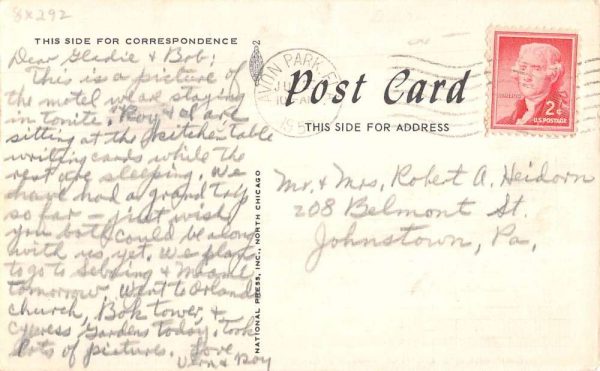 8x292
THIS SIDE FOR CORRESPONDENCE
Dear Gladie & Bob:
This is a picture of
the motel we are staying
in tonite. Roy & I are
sitting at the kitchen table
writing cards while the
rest are sleeping. We
have had a grand trip
so far - just wish
you both could be along
with us yet. We plan
to go to Sebring & Miami
tomorrow. Went to Orlando
church, Bok tower, &
Cypress Gardens today. Took
lots of pictures. Love
Vera & Roy
NATIONAL PRESS, INC., NORTH CHICAGO
2
AVON PARK
Post Card
THIS SIDE FOR ADDRESS
2¢
U.S. POSTAGE
Mr. & Mrs. Robert A. Heidorn
208 Belmont St.
Johnstown, Pa.